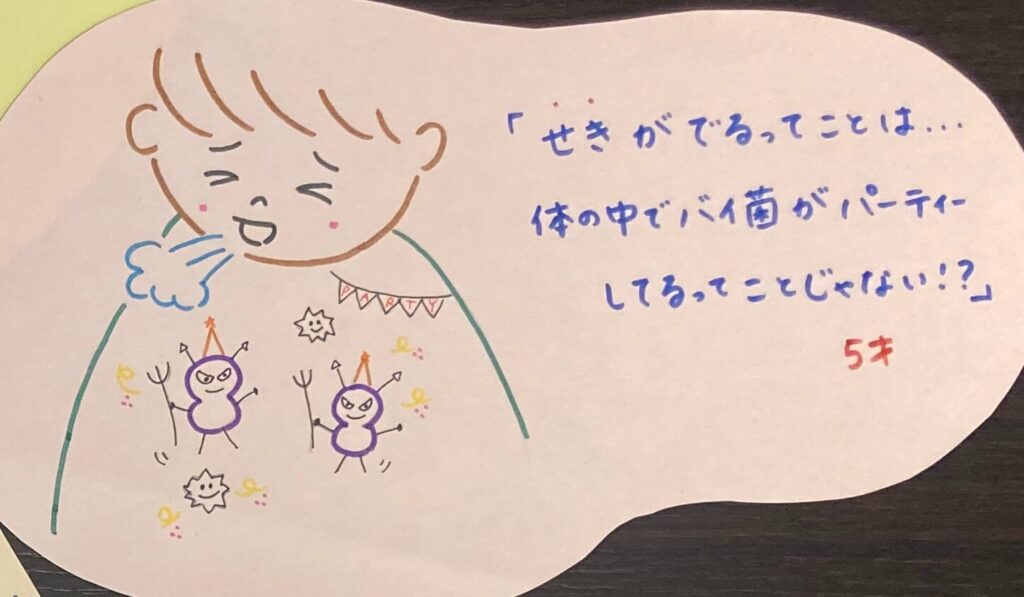 「せきがでるってことは...
体の中でバイ菌がパーティー
してるってことじゃない!?」
5才
PARTY